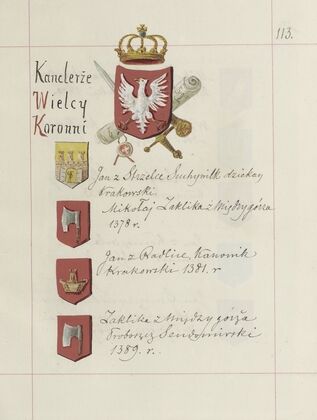 113.
Kanclerze
Wielcy
Koronni
Jan z Strzelec Suchywilk dziekan
Krakowski.
Mikołaj Zaklika z Międzygórza
1378 r.
Jan z Radlic, Kanonik
Krakowski 1381. r
Zaklika z Międzygórza
Proboszcz Sendomirski
1389. r.